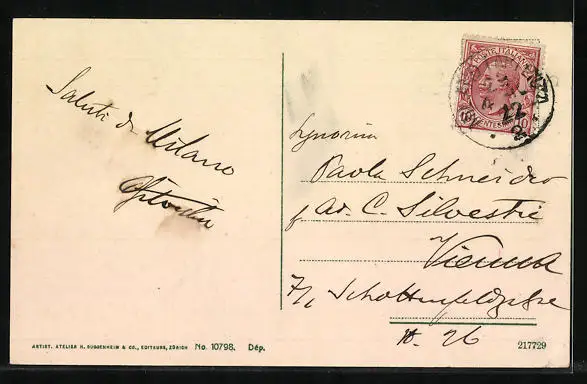 Saluti da Milano
POSTE ITALIANE
CENTESIMI 10
Signorina
Paola Schneider
p/ Ad. C. Silvestri
Vienna
7/1 Schottenfeldgasse
N. 26
ARTIST. ATELIER H. GUGGENHEIM & CO., EDITEURS, ZÜRICH No. 10798. Dép.
217729